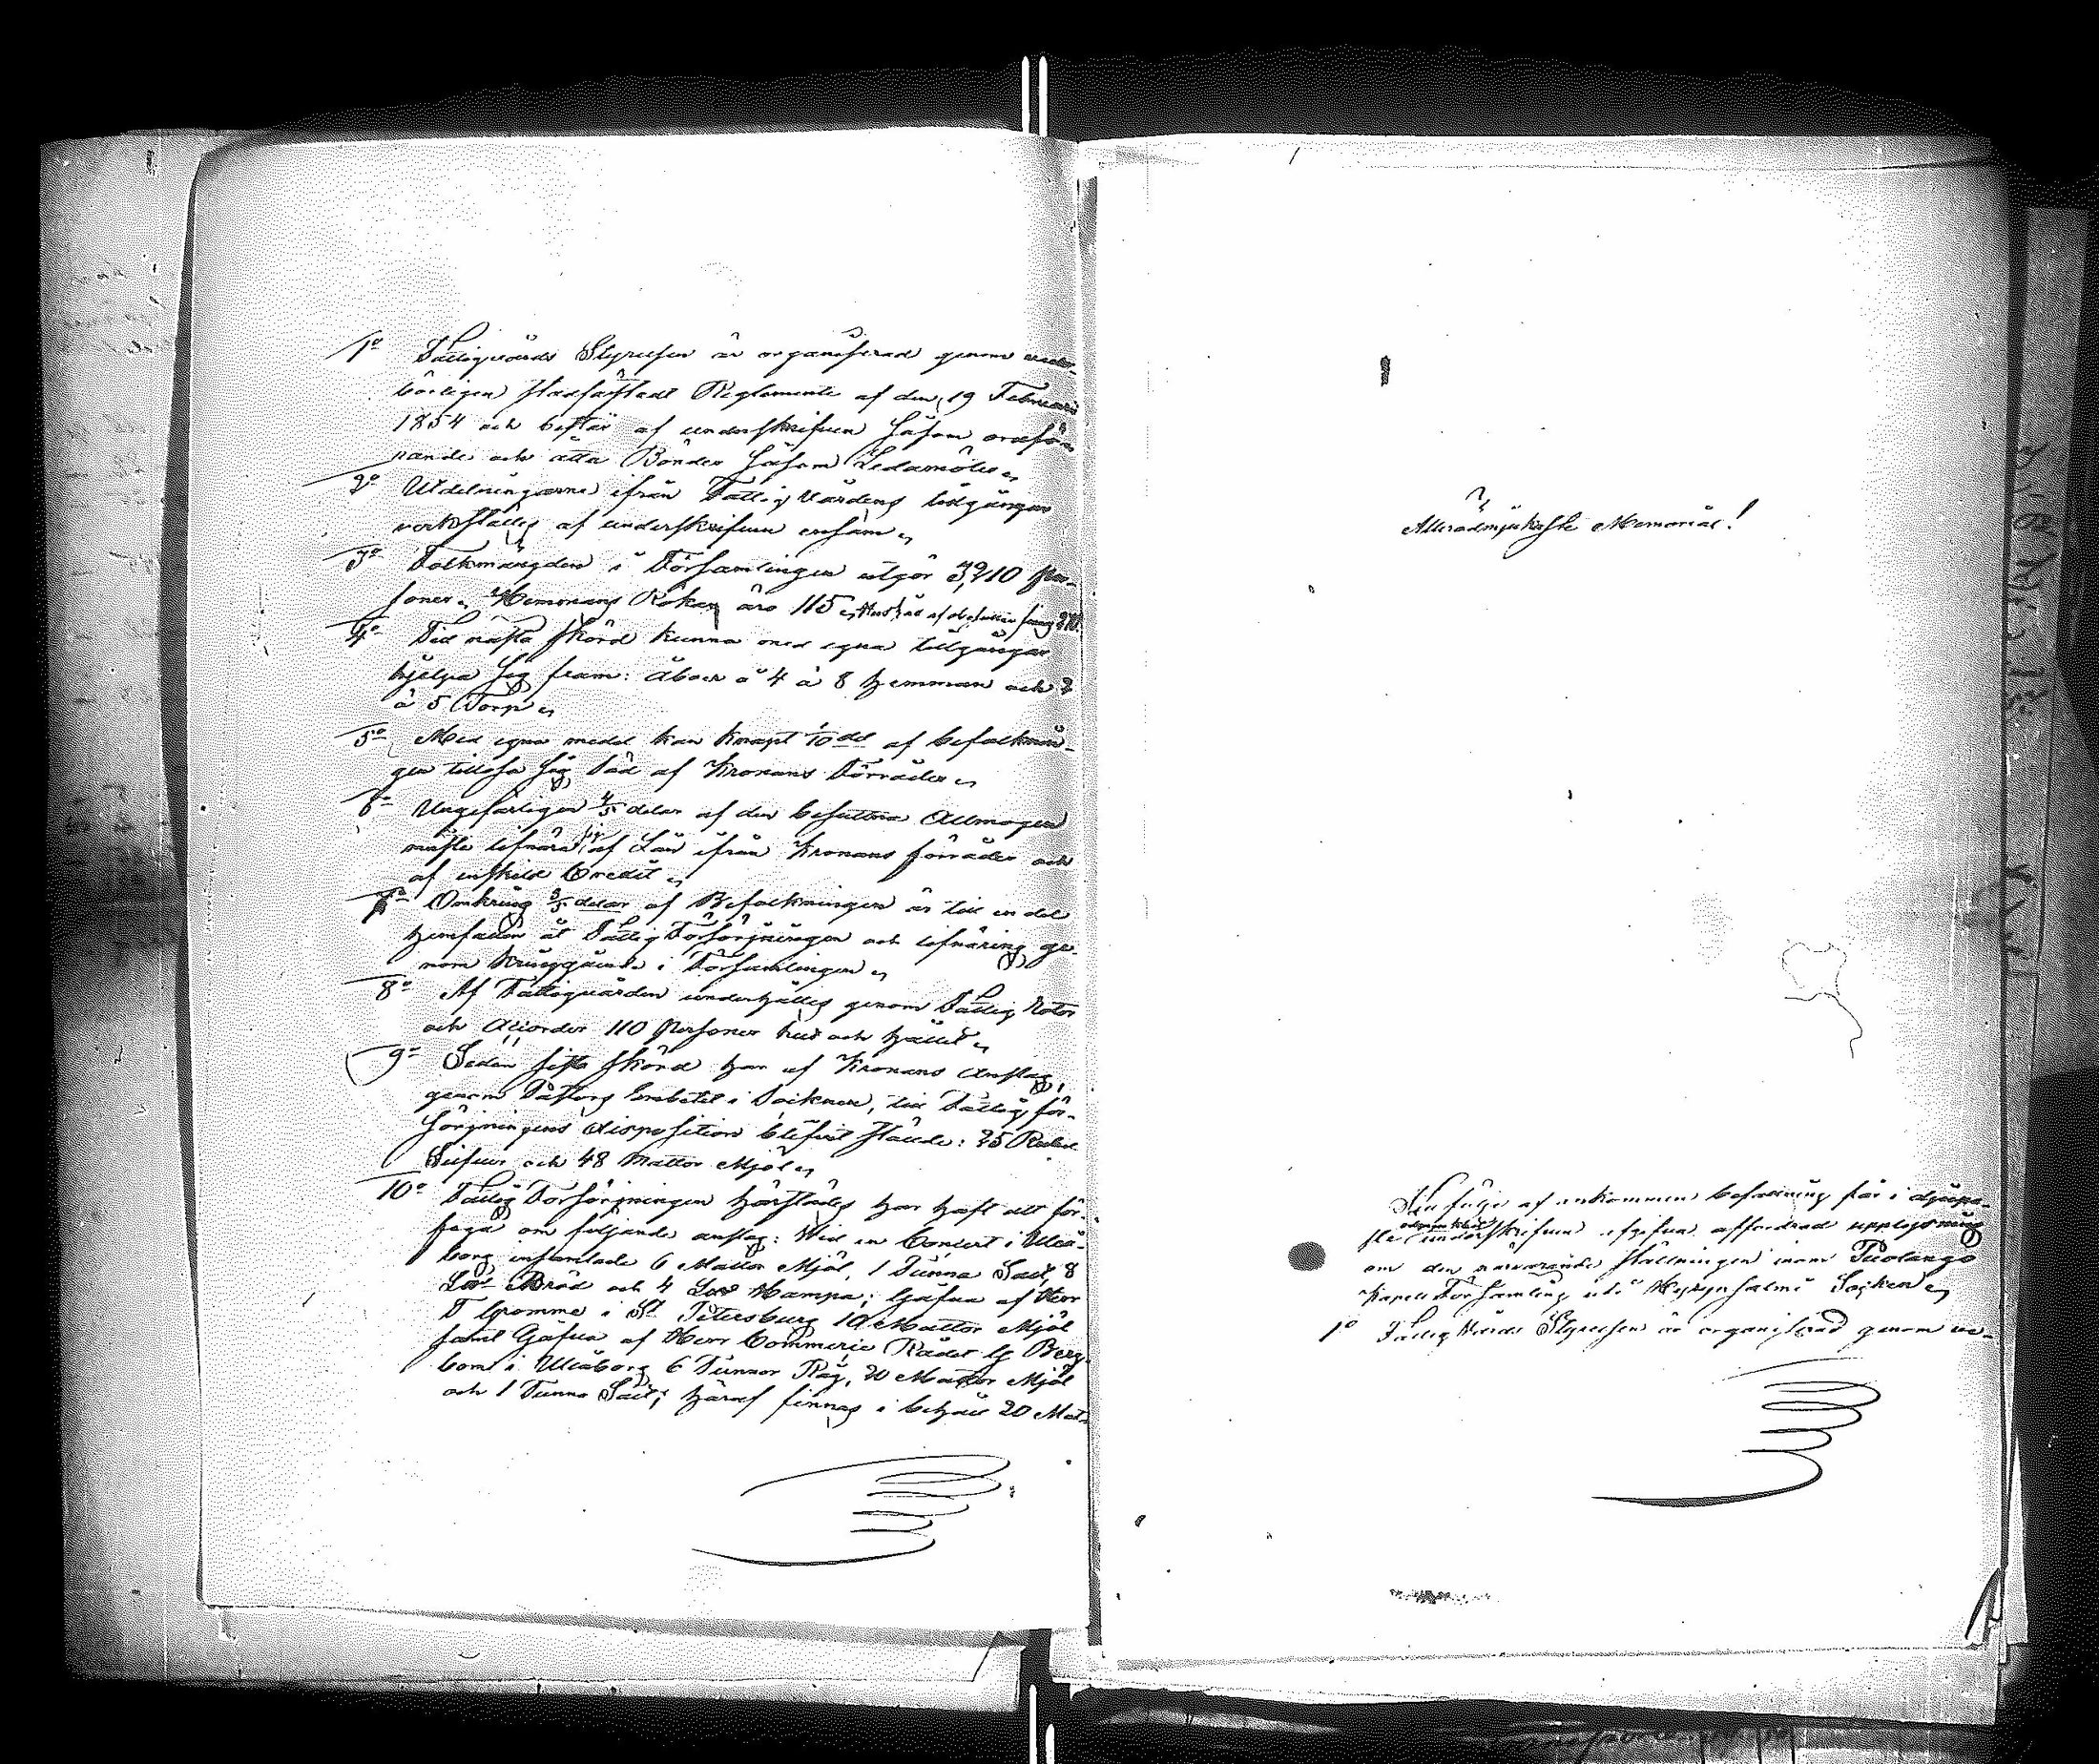 1º Fattigvårds Styrelsen är organiserad genom veder-
börligen stadfästadt Reglemente af den 19 Februari
1854 och består af underskrifven såsom ordfö-
rande och åtta Bönder såsom Ledamöter
2º Utdelningarne ifrån Fattig Vårdens tillgångar
verkställes af underskrifven ensam
3º Folkmängden i Församlingen utgör per-
soner. Hemmans Röken äro 115
4º Till nästa skörd kunna med egna tillgångar
hjelpa sig fram: Åboer å 4 à 8 Hemman och 2
à 5 Torp
5º Med egna medel kan knapt 1/10 del af befolknin-
gen tillösa sig Säd af Kronans Förråder
6º Ungefärligen 4/5 delar af den besuttna Allmogen
måste lifnära sig af Lån ifrån Kronans förråder och
af enskild Credit
7º Omkring 3/5 delar af Befolkningen är till en del
hemfallen åt Fattig Försörjningen och lifnäring ge-
nom kringgående i Församlingen
8º Af Fattigvården underhålles genom Fattig Rotor
och Ackorder 110 Personer helt och hållet
9º Sedan sista skörd har af Kronans Anslag,
genom Pastors Embetet i Socknen, till Fattig för-
sörjningens disposition blifvit stäld: 25 Rubel
Silfver och 48 mattor Mjöl
10º Fattig Försörjningen härstädes har haft att för-
foga om följande anslag: Vid en Concert i Uleå-
borg insamlade 6 Mattor Mjöl, 1 Tunna Salt, 8
Lod Bröd och 4 Lod Hampa; Gåfva af Herr
F Gromme i St Petersburg 10 Mattor Mjöl
samt Gåfva af Herr Commerce Rådet G Berg-
bom i Uleåborg 6 Tunnor Råg, 20 Mattor Mjöl
och 1 Tunna Salt; häraf finnas i behåll 20 Mat-
Allerödmjukaste Memorial!
Till följe af ankommen befallning får i djupa-
ste ödmjukhet underskrifven afgifva affordrad upplysning
om den närvarande ställningen inom Puolango
Kapell Församling uti Hyrynsalmi Socken
1º Fattig Vårds Styrelsen är organiserad genom ve-